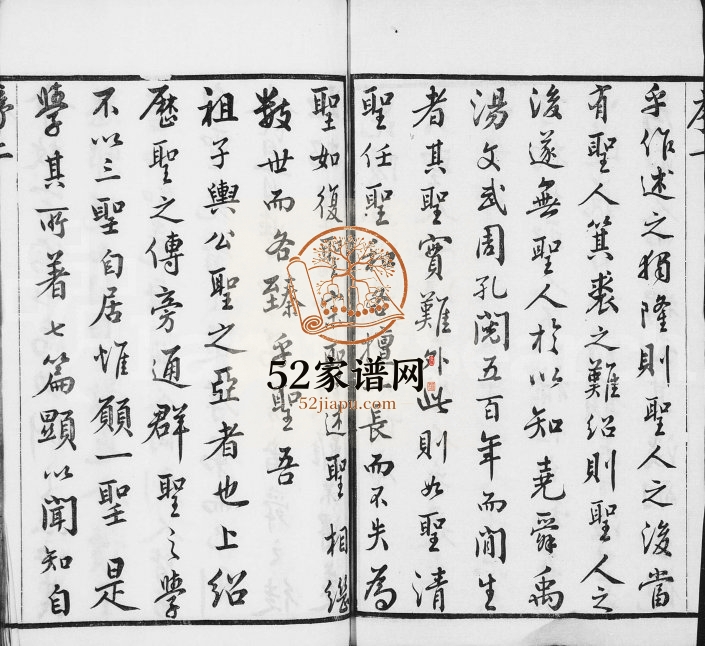 乎作述之獨隆則聖人之後當
有聖人箕裘之難紹則聖人之
後遂無聖人於以知堯舜禹
湯文武周孔閱五百年而間生
者其聖實難外此則如聖清
聖任聖和
長而不失為
聖如復聖
述聖相繼
數世而各臻乎聖吾
祖子輿公聖之亞者也上紹
歷聖之傳旁通群聖之學
不以三聖自居惟願一聖是
學其所著七篇顯以聞知自
序二
52家谱网
52jiapu.com